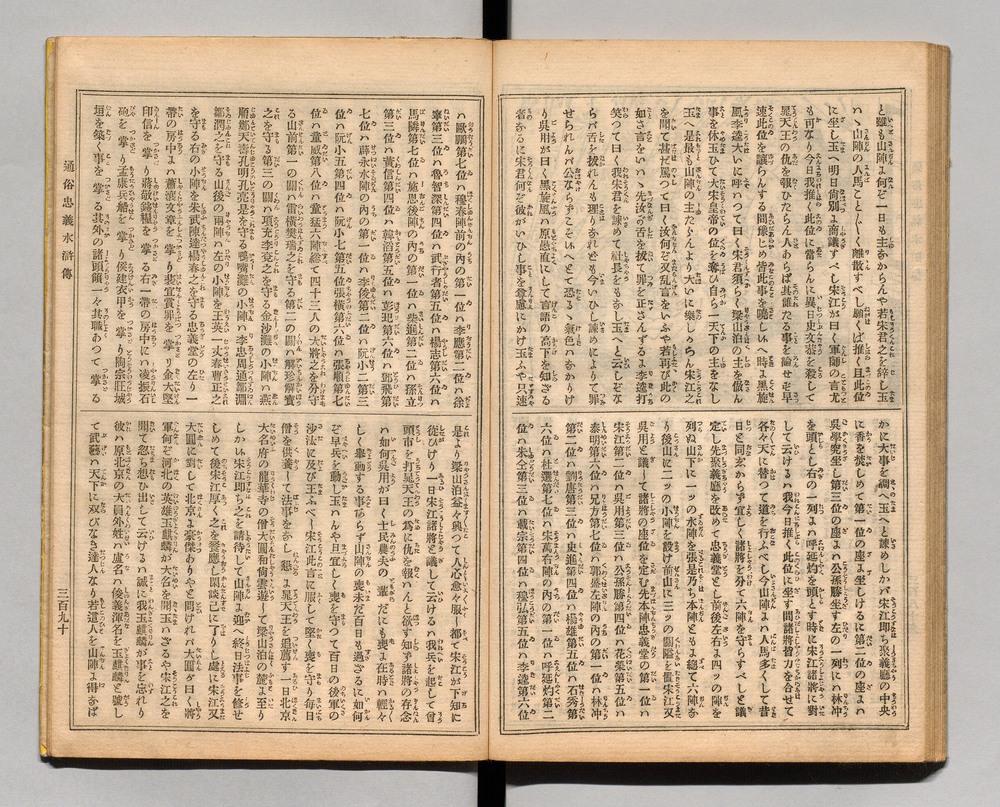 と雖も山陣よ何ぞ一日も主なからんや若宋君之を辞し玉
ハヽ山陣の人馬ことごとく離散すべし願くば推て且此位
に坐し玉へ明日尚別よ商議すべし宋江が曰く軍師の言尤
も可なり今日我推て此位に當らんに異日史文恭を殺して
晁天王の仇を報ひたらん人あらば其誰たる事を論せず早
速此位を讓らんする間豫じめ皆此事を曉し玉へ時よ黒旋
風李逵大いに呼ハつて曰く宋君須らく梁山泊の主を倣ん
事を休玉ひて大宋皇帝の位を奪ひ自ら一天下の主をなし
玉へ是最も山陣の主たらんより大いに樂しからん宋江之
を聞て甚だ罵つて曰く汝何ぞ又乱言をいふや若再び此の
如き言をいハヾ先汝の舌を拔て罪を正さんずるよ李逵打
笑ハつて曰く我宋君を強めて社長をもなし玉へと云しな
らバ舌を拔れんも理りなれども今いひし諫めによりて罪
せられんハ公ならずこそいへとて恐るゝ氣色ハなかりけ
り呉用が曰く黒旋風ハ原愚直にして言語の高下を知ざる
者なるに宋君何ぞ彼がいひし事を意慮にかけ玉ふや只速
かに大事を調へ玉へと諫めしかバ宋江即ち聚義廳の中央
に香を焚しめて第一位の座よ坐しけるに第二位の座よハ
呉學究坐し第三位の座よハ公孫勝坐す左の一列にハ林冲
を頭とし右の一列よハ呼延灼を頭とす時に宋江諸將に對
して云けるハ我今日推て此位に坐す間諸將皆力を合せて
各々天に替つて道を行ふべし今山陣よハ人馬多くして昔
日と同志からず宜しく諸將を分て六陣を守らすべしと議
定し先聚義廳を改めて忠義堂とし前後左右よ四ツの陣を
列ね山下に一ツの水陣を張是乃ち本陣ともよ總て六陣な
り後山に二ツの小陣を設け前山に三ツの關隘を置宋江又
呉用と議して諸將の座位を定む先本陣忠義堂の第一位ハ
宋江第二位ハ呉用第三位ハ公孫勝第四位ハ花榮第五位ハ
秦明第六位ハ呂方第七位ハ郭盛左陣の内の第一位ハ林冲
第二位ハ劉唐第三位ハ史進第四位ハ楊雄第五位ハ石秀第
六位ハ杜遷第七位ハ宋萬右陣の内の第一位ハ呼延灼第二
位ハ朱仝第三位ハ戴宗第四位ハ穆弘第五位ハ李逵第六位
ハ歐鵬第七位ハ穆春陣前の内の第一位ハ李應第二位ハ徐
寧第三位ハ魯智深第四位ハ行者第五位ハ楊志第六位ハ
馬麟第七位ハ施恩後陣の内の第一位ハ柴進第二位ハ孫立
第三位ハ黃信第四位ハ韓滔第五位ハ彭玘第六位ハ鄧飛第
七位ハ薛永水陣の内の第一位ハ李俊第二位ハ阮小二第三
位ハ阮小五第四位ハ阮小七第五位ハ張橫第六位ハ張順第七
位ハ童威第八位ハ童猛六陣総て四十三人の大將之を分守
る山前第一の關ハ雷橫樊瑞之を守る第二の關ハ解珍解寳
之を守る第三の關ハ項充李袞之を守る金沙灘の小陣ハ燕
順鄭天壽孔明孔亮是を守る鴨嘴灘の小陣ハ李忠周通鄒淵
鄒潤之を守る山後の兩陣ハ左の小陣を王英一丈春曹正之
を守る右の小陣を朱武陳達楊春之を守る忠義堂の左り一
帶の房中よハ蕭讓文筆を掌り裴宣賞罪を掌り金大堅
印信を掌り蔣敬錢糧を掌る右一帶の房中にハ凌振石
砲を掌り孟康兵舩を掌り侯建衣甲を掌り陶宗旺城
垣を築く事を掌る其外の諸頭領一々其職あつて掌る
是より梁山泊益々興つて人心愈々服し都て宋江が下知に
從ひけり一日宋江諸將と議して云けるハ我兵を起して曾
頭市を打晁天王の爲に仇を報ハんと欲す知ず諸將の存念
ハ如何呉用が曰く士民農夫の輩だにも喪よ在時ハ輕々
しく擧動する事あらず山陣の喪未だ百日も過ざるに如何
ぞ早兵を動し玉ハんや且宜しく喪を守つて百日の後軍の
沙汰に及び王ふべし宋江此言に服して堅く喪を守り毎日
僧を供養して法事をなし懇よ晁天王を追薦す一日北京
大名府の龍華寺の僧大圓和尚雲遊して梁山泊の麓よ至り
しかバ宋江即ち之を請待して山陣よ迎へ終日法事を修せ
しめて後宋江厚く之を饗應し閑談已に了りし處に宋江又
大圓に對して北京よ豪傑ありやと問けれバ大圓が曰く將
軍何ぞ河北の英雄玉麒麟が大名を聞玉ハざるや宋江之を
聞て忽ち想ひ出して云けるハ誠に我玉麒麟が事を忘れり
彼ハ原北京の大員外姓ハ盧名ハ俊義渾名を玉麒麟と號し
て武藝ハ天下に双びなき達人なり若這人を山陣よ得なば
通俗忠義水滸傳
三百九十